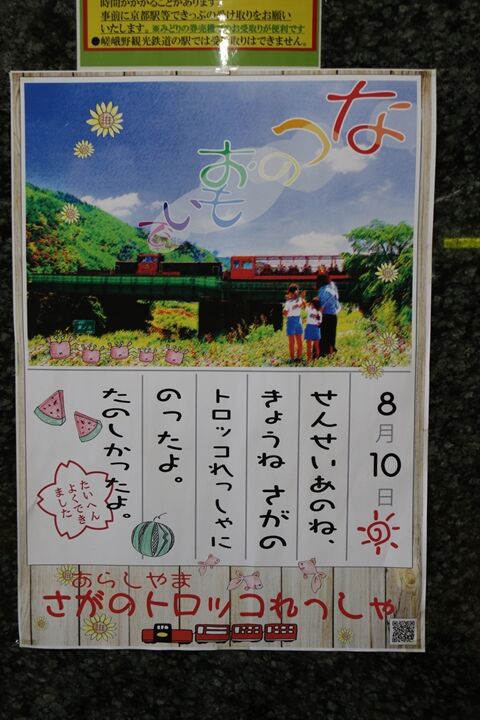 時間がかかることがあります。
事前に京都駅等できっぷの受け取りをお願い
いたします。※みどりの券売機でのお受取りが便利です
●嵯峨野観光鉄道の駅では受取りはできません。
なつのおもいで
8月10日
せんせいあのね、
きょうね さがの
トロッコれっしゃに
のったよ。
たのしかったよ。
たいへん
よくでき
ました
あらしやま
さがのトロッコれっしゃ